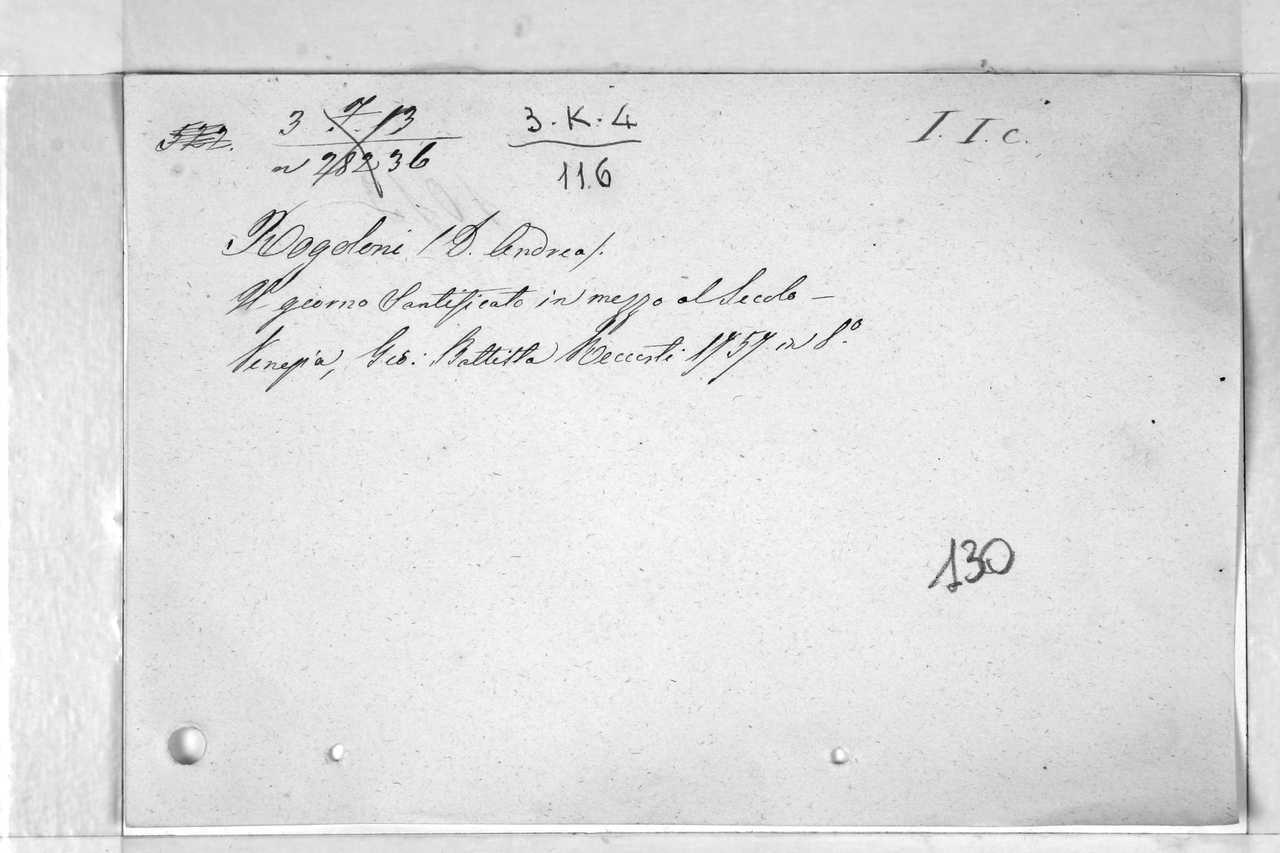 3 . 7 . 13   3 . K . 4   I. I c.
n 282 36   116
Rogoloni (D. Andrea).
Il giorno Santificato in mezzo al Secolo –
Venezia, Gio: Battista Recurti 1757 in 8.º
130